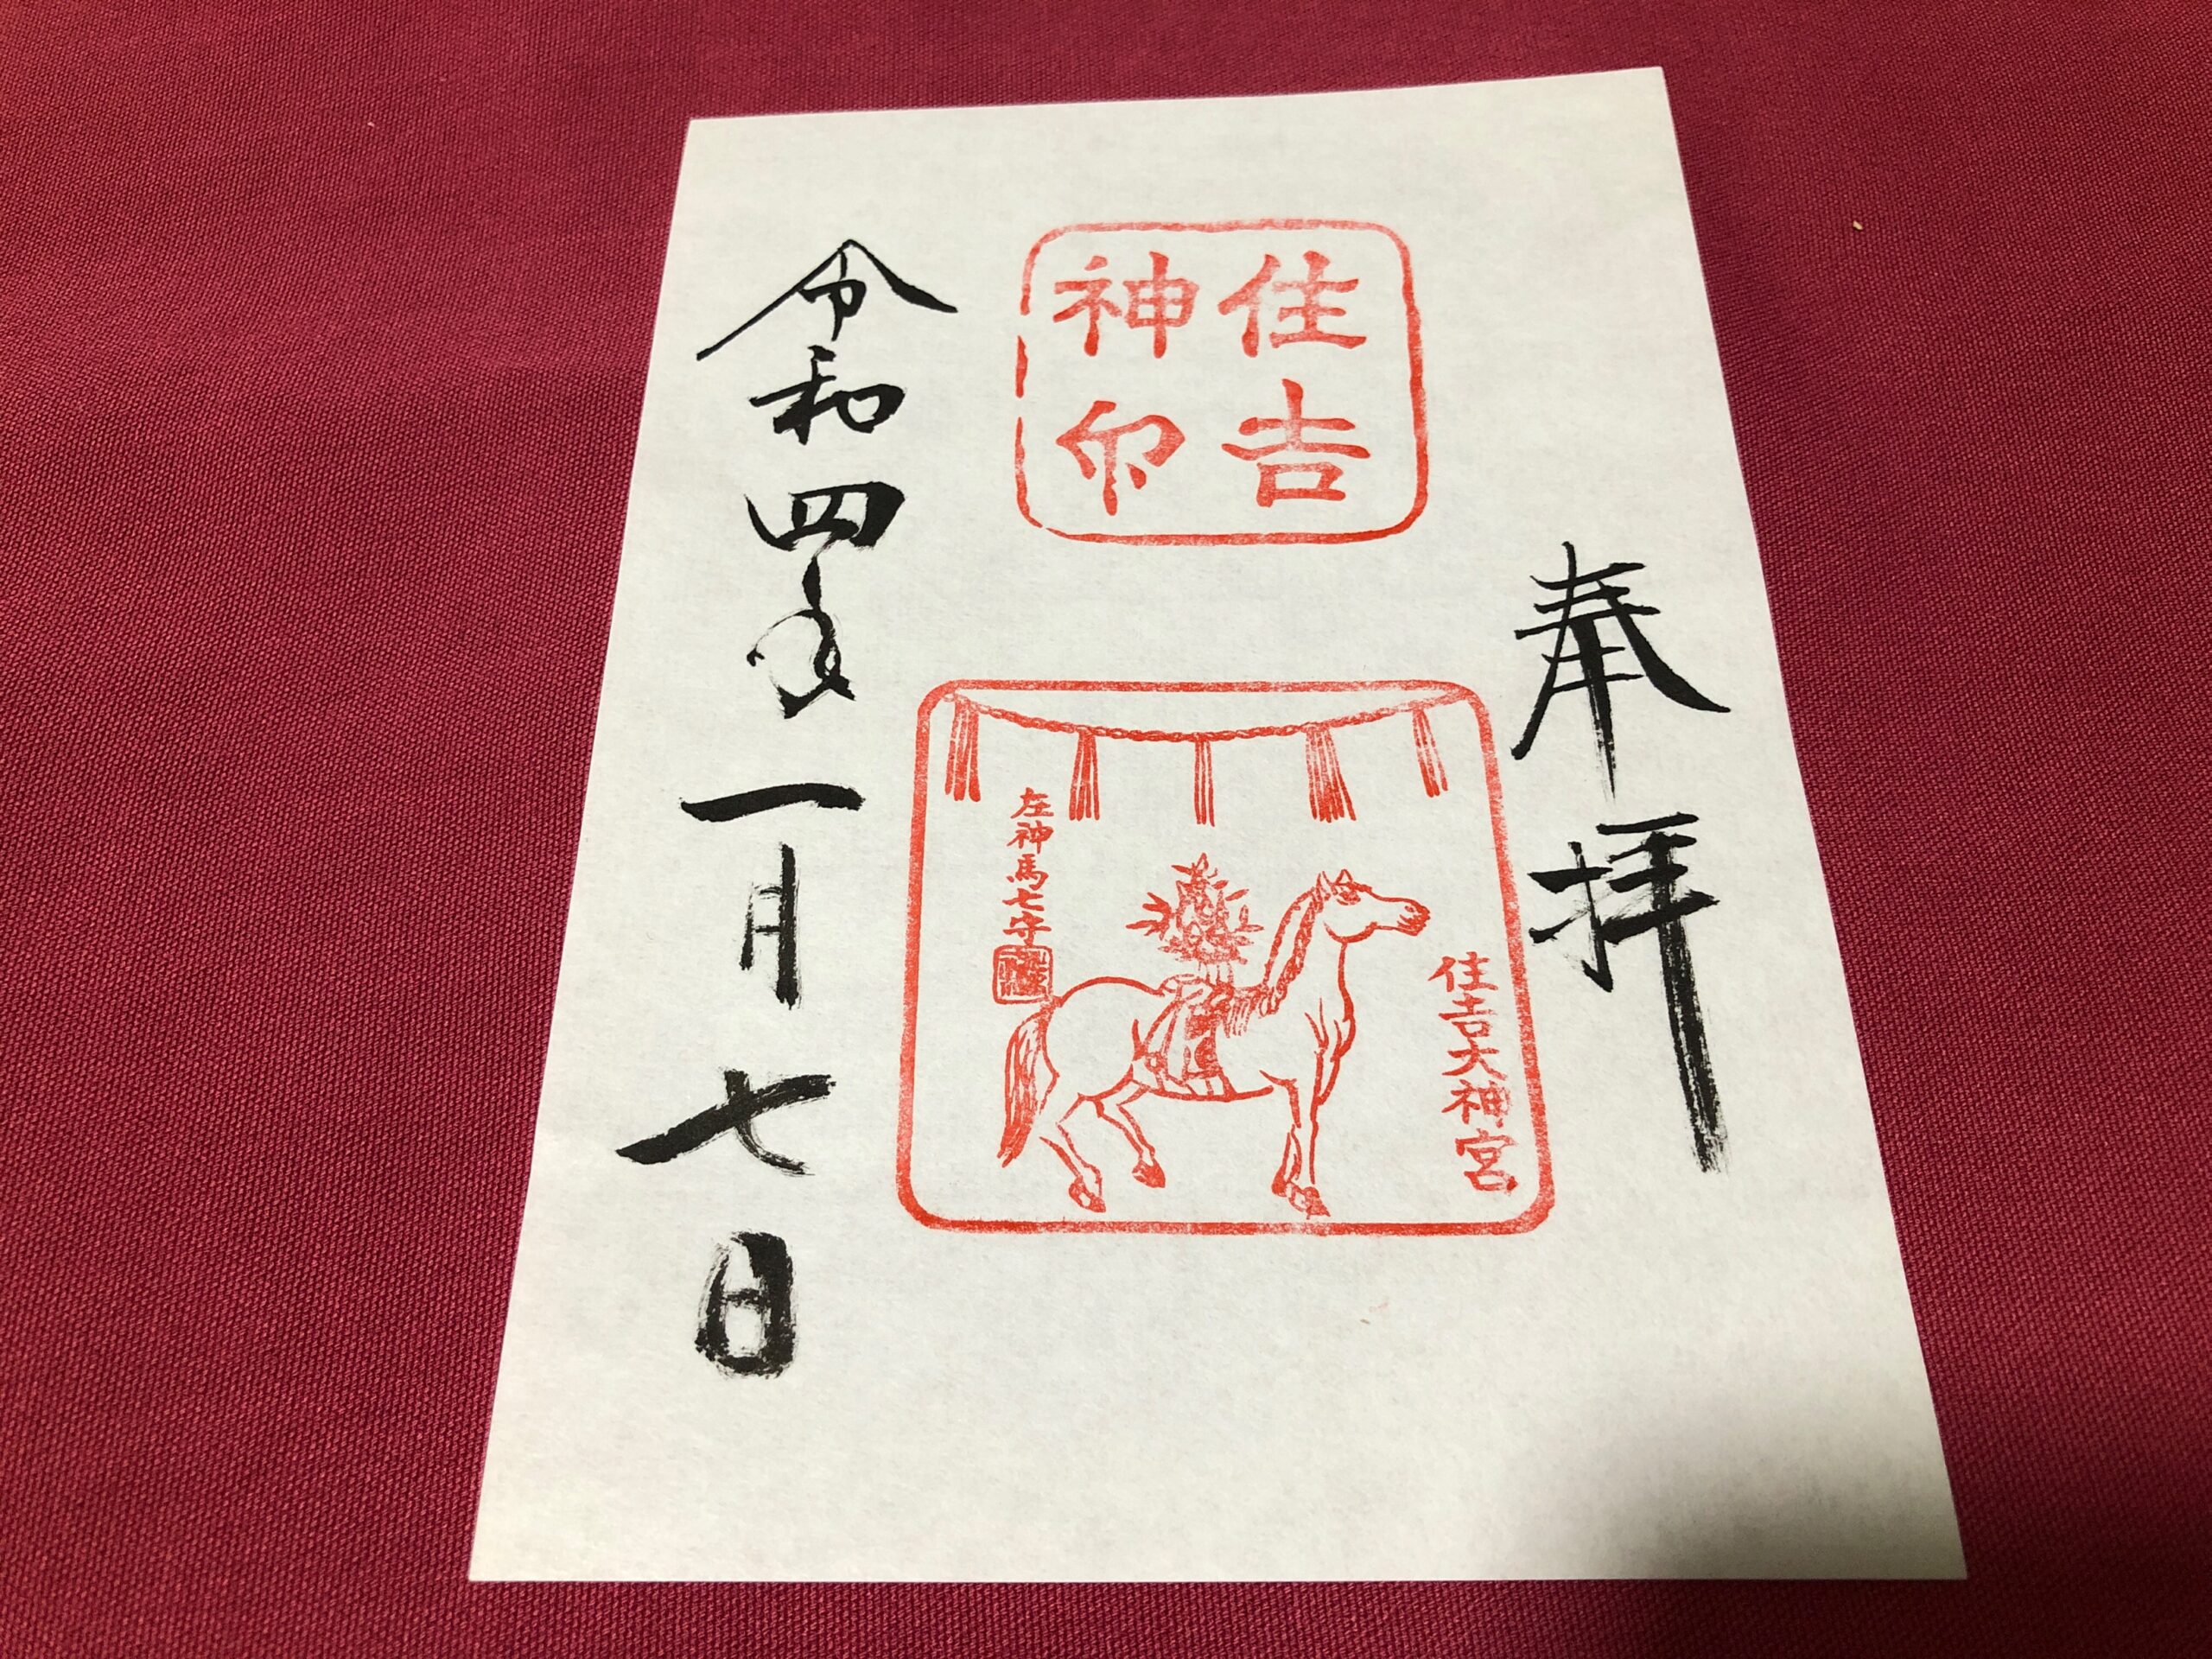 奉拝
住吉
神印
住吉大神宮
左神馬七字
令和四年一月七日